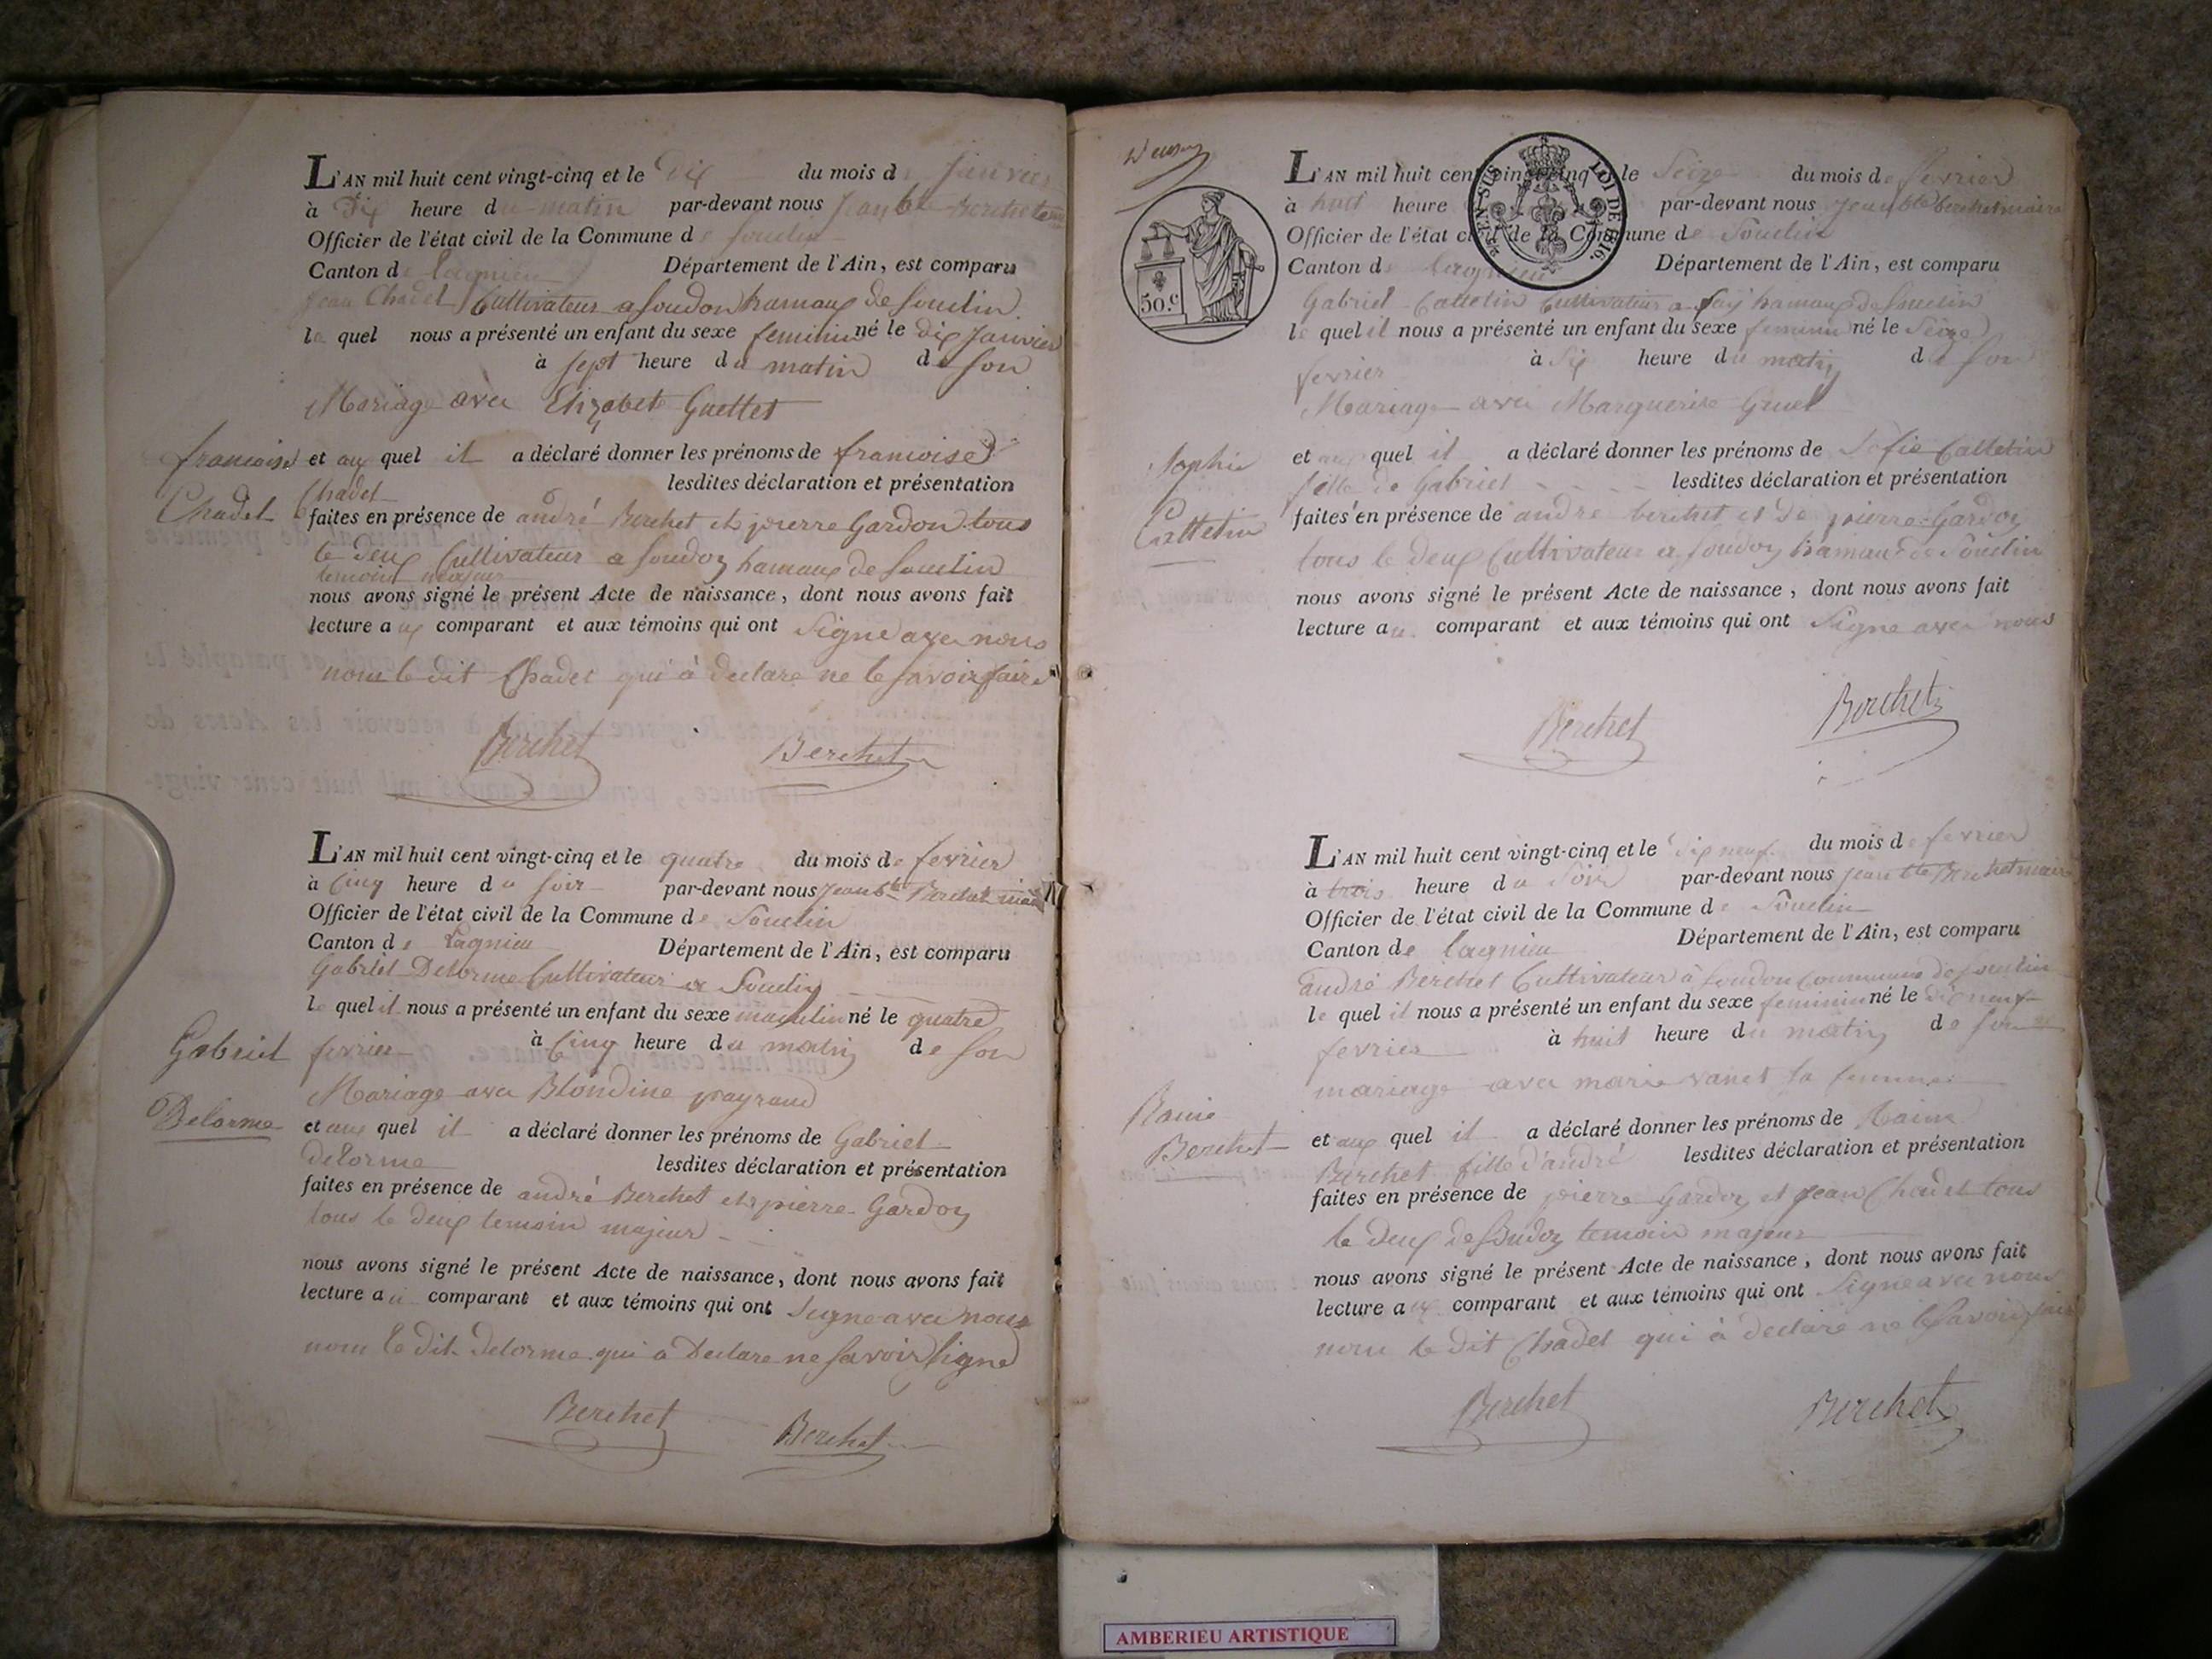 L'AN mil huit cent vingt-cinq et le Dix du mois de janvier
à Dix heure du matin par-devant nous Jean bte Berchet
Officier de l'état civil de la Commune de Souclin
Canton de lagnieu Département de l'Ain, est comparu
Jean Chadel Cultivateur a Soudon hamaux de Souclin
le quel nous a présenté un enfant du sexe feminin né le dix Janvier
à sept heure du matin de son
Mariage avec Elizabet Guettet
francoise
Chadel
et aux quel il a déclaré donner les prénoms de francoise
Chadel lesdites déclaration et présentation
faites en présence de andré Berchet et pierre Gardon tous
le deux Cultivateur a Soudon hamaux de Souclin
temoins majeur
nous avons signé le présent Acte de naissance, dont nous avons fait
lecture aux comparant et aux témoins qui ont Signe avec nous
nom le dit Chadel qui à declare ne le Savoir faire
Berchet Berchet
L'AN mil huit cent vingt-cinq et le quatre du mois de fevrier
à Cinq heure du soir par-devant nous Jean bte Berchet maire
Officier de l'état civil de la Commune de Souclin
Canton de Lagnieu Département de l'Ain, est comparu
Gabriel Delorme Cultivateur a Souclin
le quel il nous a présenté un enfant du sexe masculin né le quatre
fevrier à Cinq heure du matin de son
Mariage avec Blondine payraud
Gabriel
Delorme
et aux quel il a déclaré donner les prénoms de Gabriel
delorme lesdites déclaration et présentation
faites en présence de andré Berchet et pierre Gardon
tous le deux temoin majeur
nous avons signé le présent Acte de naissance, dont nous avons fait
lecture au comparant et aux témoins qui ont Signe avec nous
nom le dit Delorme qui a Declare ne Savoir Signe
Berchet Berchet
50.c
EN SUS LOI DE 1816.
L'AN mil huit cent vingt-cinq et le Seize du mois de fevrier
à huit heure par-devant nous jean bte berchet maire
Officier de l'état civil de la Commune de Souclin
Canton de lagnieu Département de l'Ain, est comparu
Gabriel Cattetin Cultivateur a fay hamaux de Souclin
le quel il nous a présenté un enfant du sexe feminin né le Seize
fevrier à Six heure du matin de son
Mariage avec Marguerite Gruel
Sophie
Cattetin
et aux quel il a déclaré donner les prénoms de Sofie Cattetin
fille de Gabriel lesdites déclaration et présentation
faites en présence de andre berchet et de pierre Gardon
tous le deux Cultivateur a Soudon hamaux de Souclin
nous avons signé le présent Acte de naissance, dont nous avons fait
lecture au comparant et aux témoins qui ont Signe avec nous
Berchet Berchet
L'AN mil huit cent vingt-cinq et le Dix neuf du mois de fevrier
à trois heure du Soir par-devant nous jean bte Berchet maire
Officier de l'état civil de la Commune de Souclin
Canton de lagnieu Département de l'Ain, est comparu
andré Berchet Cultivateur à Soudon Commune de Souclin
le quel il nous a présenté un enfant du sexe feminin né le dix neuf
fevrier à huit heure du matin de son
mariage avec marie vanet sa femme
Berchet
et aux quel il a déclaré donner les prénoms de
Berchet fille d'andré lesdites déclaration et présentation
faites en présence de pierre Gardon et Jean Chadel tous
le deux de Soudon temoin majeur
nous avons signé le présent Acte de naissance, dont nous avons fait
lecture aux comparant et aux témoins qui ont Signe avec nous
nom le dit Chadel qui à declare ne le Savoir faire
Berchet Berchet
AMBERIEU ARTISTIQUE